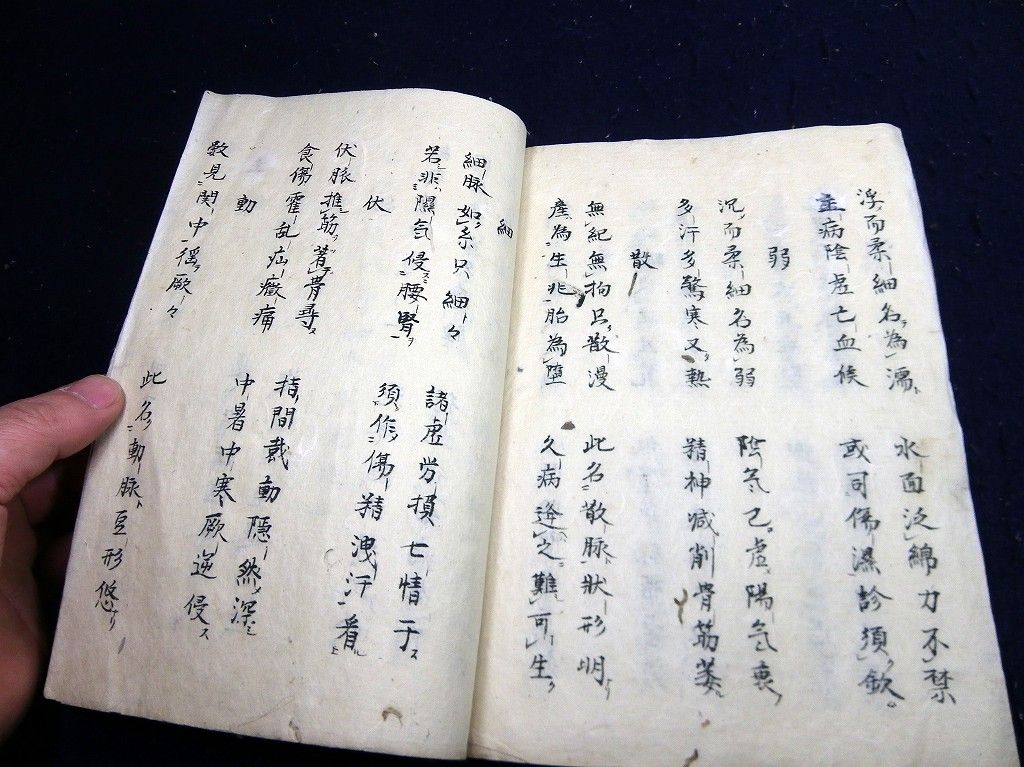 浮而柔細名為濡 水面泛綿力不禁
主病陰虚亡血候 或可傷濕診須欽
弱
沉而柔細名為弱 陰気已虚陽気衰
多汗多驚寒又熱 精神減削骨筋萎
散
無紀無拘只散漫 此名散脈状形明
産為生非胎為墮 久病逢之難可生
細
細脈如糸只細々 諸虚労損七情于
若非陽気侵腰腎 須作傷精洩汗看
伏
伏脈推筋著骨尋 指間裁動隠然深
食傷霍乱疝癥痛 中暑中寒厥逆侵
動
数見関中揺厥々 此名動脈豆形悠